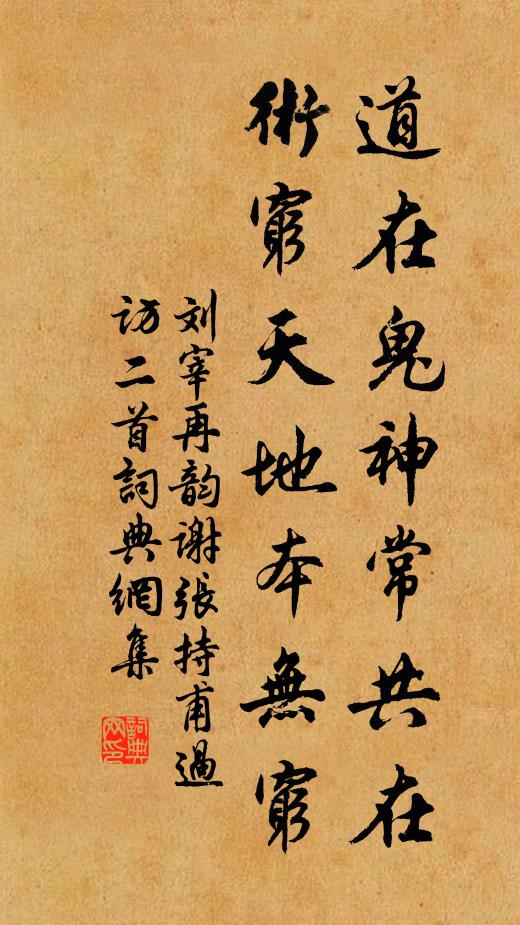 道在鬼神常共在
術窮天地本無窮
刘宰再韵谢張持甫過
访二首詞典網集
詞典網印